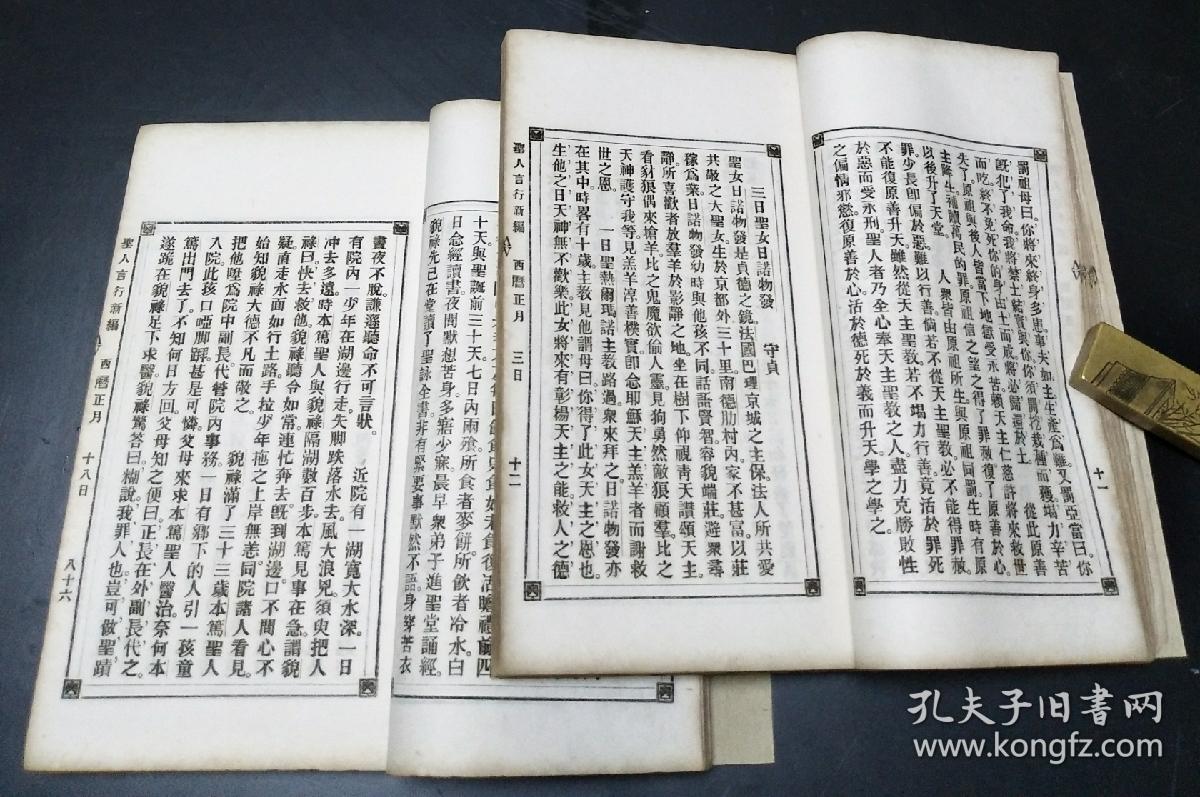 罰祖母曰。你將來終身多患事。夫加主生產爲難。又罰亞當曰。你
既犯了我命。我將禁土結實與你。你須開挖我種而穫。竭力辛苦
而吃。終不免死。你的身。由土而成。將必歸還於土。從此原善
失了。原祖與後人皆當下地獄受永苦。賴天主仁慈。許將來救世
主降生。補贖萬民的罪。原祖信之望之。得了罪赦。復了原善於心。
以後升了天堂。　人衆皆由原祖所生。與原祖同罰。生時有原
罪。少長卽偏於惡。難以行善。倘若不從天主聖教。必不能得罪赦。
不能復原善升天。雖然從天主聖教。若不竭力行善。竟活於罪死
於惡而受永刑。聖人者。乃全心奉天主聖教之人。盡力克勝敗性
之偏情邪慾。復原善於心。活於德。死於義。而升天。學之學之。
十一
三日聖女日諾物發　守貞
聖女日諾物發。是貞德之鏡。法國巴理京城之主保。法人所共愛
共敬之大聖女。生於京都外三十里南德肋村內。家不甚富。以莊
稼爲業。日諾物發幼時。與他孩不同。話語賢智。容貌端莊。避衆尋
靜。所喜歡者。放羣羊於影靜之地。坐在樹下。仰視青天。讚頌天主。
看豺狼偶來搶羊。比之鬼魔欲偷人靈。見狗勇然敵狼顧羣。比之
天神護守我等。見羔羊淳善樸實。卽念耶穌天主羔羊者。而謝救
世之恩。　一日聖熱爾瑪諾主教路過。衆來拜之。日諾物發亦
在其中。時畧有十歲。主教見他。謂母曰。你得了此女。天主之恩也。
生他之日。天神無不歡樂。此女將來有彰揚天主之能。救人之德
聖人言行新編　西曆正月　三日　十二
十天與聖誕前三十天。七日內兩飱。所食者麥餅。所飲者冷水。白
日念經讀書。夜間默想苦身。多寤少寐。晨早衆弟子進聖堂誦經。
貌祿先已在堂。讀了聖詠全書。非有緊要事。默然不語。身穿苦衣
晝夜不脫。謙遜聽命。不可言狀。　近院有一湖。寬大水深。一日
有院內一少年。在湖邊行走。失脚跌落水去。風大浪兇。須臾把人
冲去多遠。時本篤聖人與貌祿。隔湖數百步。本篤見事在急。謂貌
祿曰。快去救他。貌祿聽令如常。連忙奔去。旣到湖邊。口不問心不
疑。直走水面。如行土路。手拉少年。拖之上岸無恙。同院諸人看見。
始知貌祿大德不凡而敬之。　貌祿滿了三十三歲。本篤聖人
把他陞爲院中副長。代管院內事務。一日有鄉下的人。引一孩童
入院。此孩口啞脚踭。甚是可憐。父母來求本篤聖人醫治。奈何本
篤出門去了。不知何日方回。父母知之。便曰。正長在外。副長代之。
遂跪在貌祿足下求醫。貌祿驚答曰。糊說。我罪人也。豈可做聖蹟
聖人言行新編　西曆正月　十八日　八十六
孔夫子旧书网
www.kongfz.com